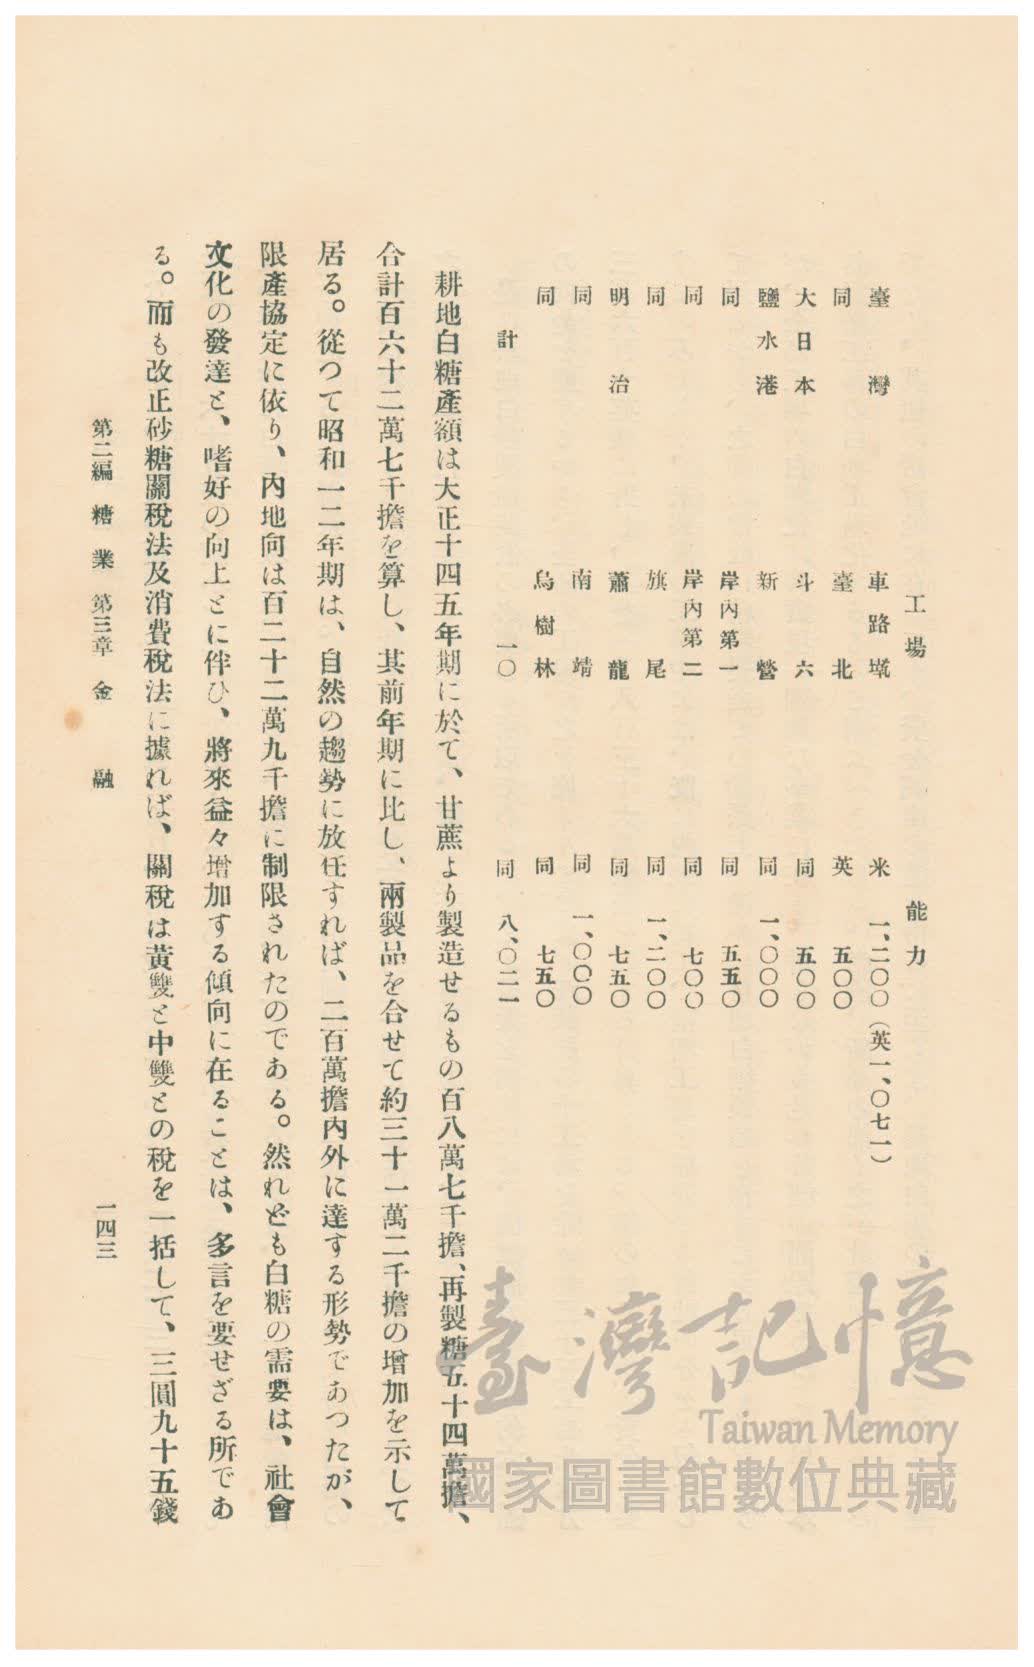 工場 能力
臺灣 車路墘 米 一、二〇〇(英一、〇七一)
同 臺北 英 五〇〇
大日本 斗六 同 五〇〇
鹽水港 新營 同 一、〇〇〇
同 岸內第一 同 五五〇
同 岸內第二 同 七〇〇
同 旗尾 同 一、二〇〇
明治 蕭龍 同 七五〇
同 南靖 同 一、〇〇〇
同 烏樹林 同 七五〇
計 一〇 同 八、〇二一
耕地白糖產額は大正十四五年期に於て、甘蔗より製造せるもの百八萬七千擔、再製糖五十四萬擔、
合計百六十二萬七千擔を算し、其前年期に比し、兩製品を合せて約三十一萬二千擔の增加を示して
居る。從つて昭和一二年期は、自然の趨勢に放任すれば、二百萬擔內外に達する形勢であつたが、
限產協定に依り、內地向は百二十二萬九千擔に制限されたのである。然れども白糖の需要は、社會
文化の發達と、嗜好の向上とに伴ひ、將來益々增加する傾向に在ることは、多言を要せざる所であ
る。而も改正砂糖關稅法及消費稅法に據れば、關稅は黃雙と中雙との稅を一括して、三圓九十五錢
第二編 糖業 第三章 金融 一四三
臺灣記憶
Taiwan Memory
國家圖書館數位典藏